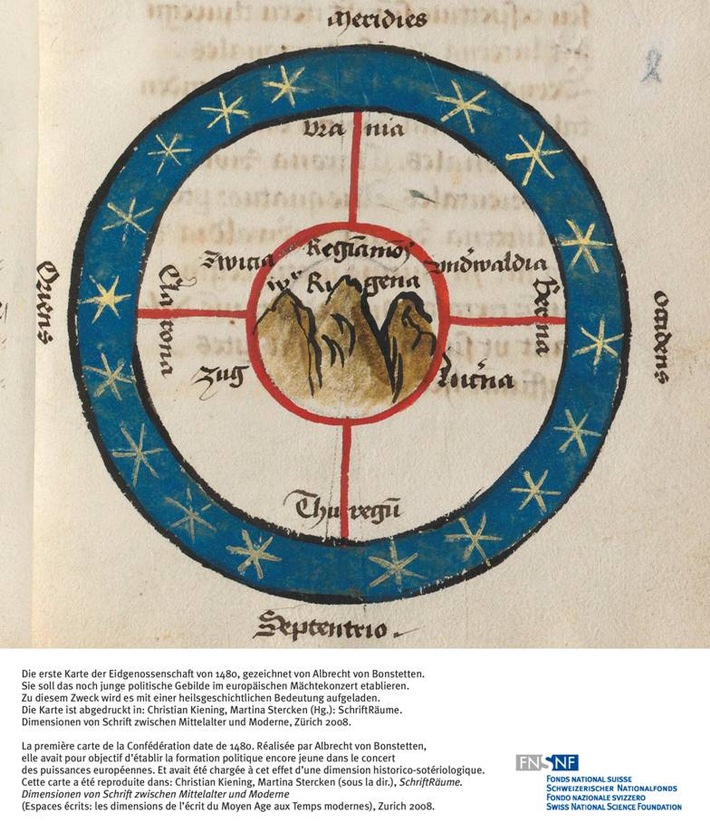 Meridies
Vrania
Regiamōs
Zwicia
Vndwaldia
Rigena
Oriens
Clarona
Berna
occidens
Zug
Lucˀna
Thuregū
Septentrio.
Die erste Karte der Eidgenossenschaft von 1480, gezeichnet von Albrecht von Bonstetten.
Sie soll das noch junge politische Gebilde im europäischen Mächtekonzert etablieren.
Zu diesem Zweck wird es mit einer heilsgeschichtlichen Bedeutung aufgeladen.
Die Karte ist abgedruckt in: Christian Kiening, Martina Stercken (Hg.): SchriftRäume.
Dimensionen von Schrift zwischen Mittelalter und Moderne, Zürich 2008.
La première carte de la Confédération date de 1480. Réalisée par Albrecht von Bonstetten,
elle avait pour objectif d'établir la formation politique encore jeune dans le concert
des puissances européennes. Et avait été chargée à cet effet d'une dimension historico-sotériologique.
Cette carte a été reproduite dans: Christian Kiening, Martina Stercken (sous la dir.), SchriftRäume.
Dimensionen von Schrift zwischen Mittelalter und Moderne
(Espaces écrits: les dimensions de l'écrit du Moyen Age aux Temps modernes), Zurich 2008.
FNSNF
FONDS NATIONAL SUISSE
SCHWEIZERISCHER NATIONALFONDS
FONDO NAZIONALE SVIZZERO
SWISS NATIONAL SCIENCE FOUNDATION